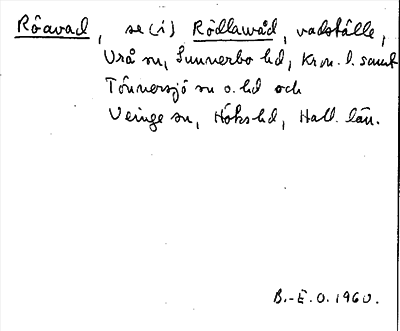 Röavad, se (i) Rödlawåd, vadställe,
Vrå sn, Sunnerbo hd, Kron. l. samt
Tönnersjö sn o. hd och
Veinge sn, Höks hd, Hall. län.
B.-E.O. 1960.